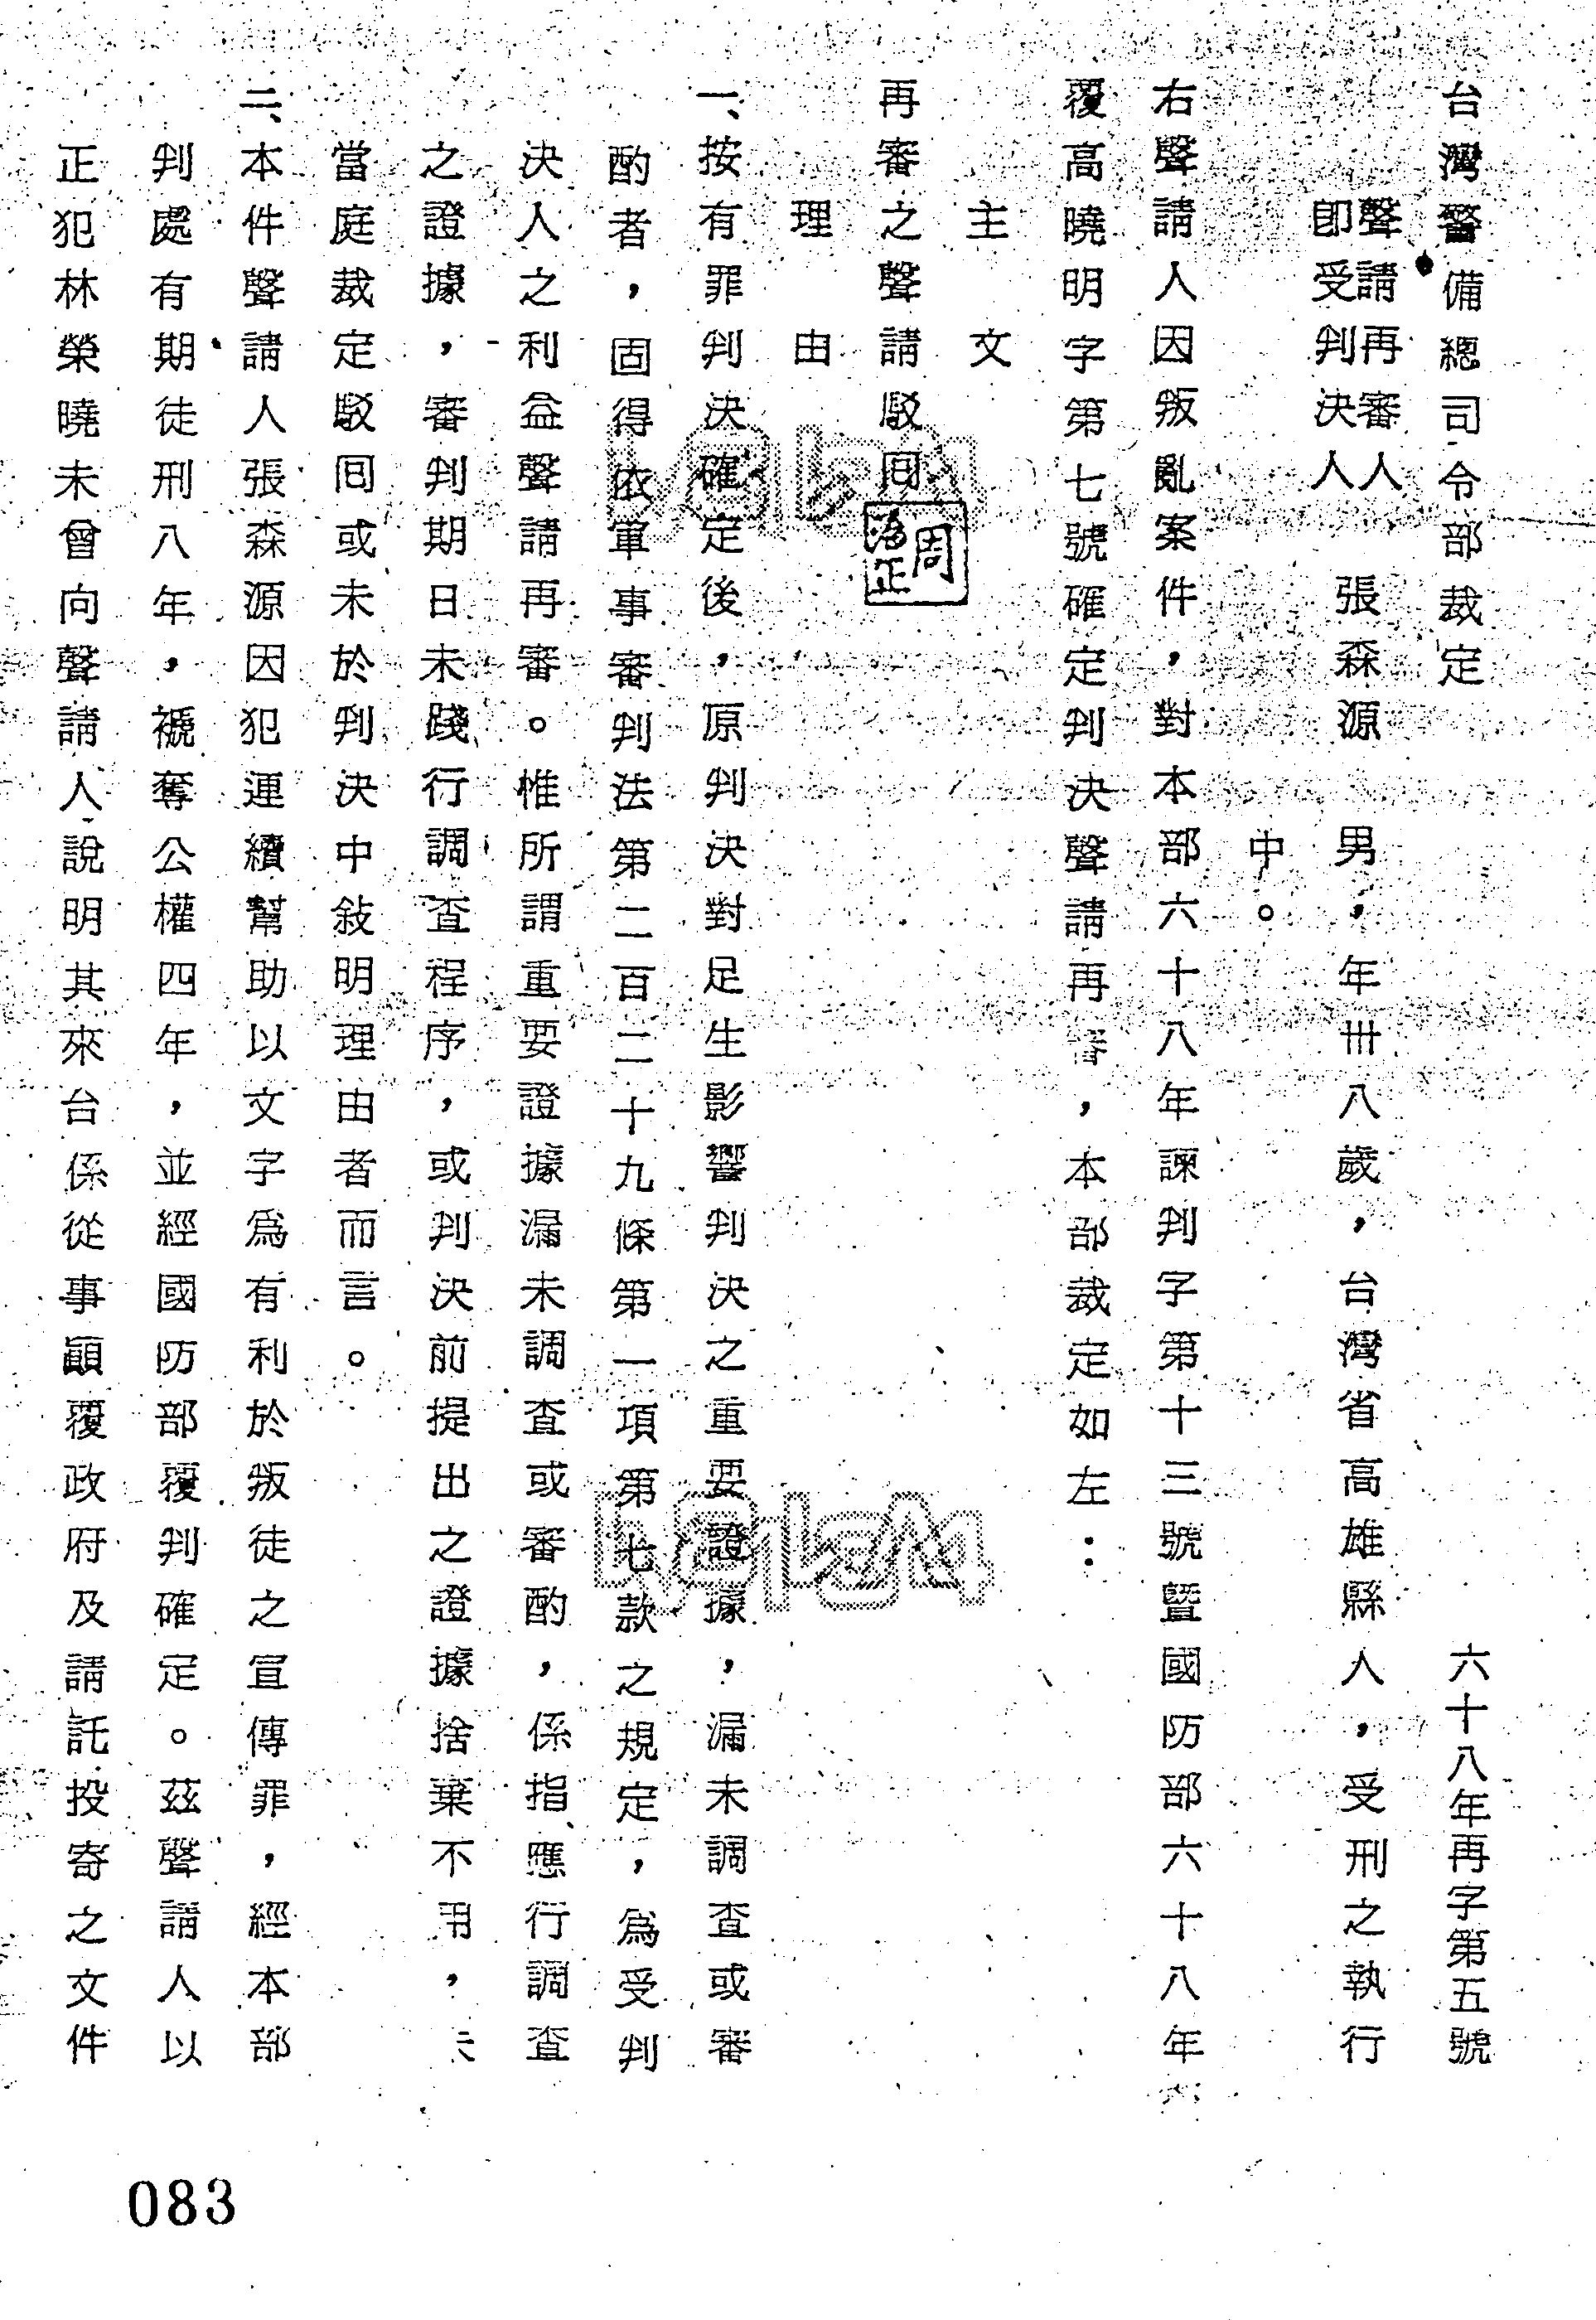 台灣警備總司令部裁定　六十八年再字第五號
聲請再審人
即受判決人　張森源　男，年卅八歲，台灣省高雄縣人，受刑之執行
中。
右聲請人因叛亂案件，對本部六十八年諫判字第十三號暨國防部六十八年
覆高曉明字第七號確定判決聲請再審，本部裁定如左：
主文
再審之聲請駁回
周治正
理由
一、按有罪判決確定後，原判決對足生影響判決之重要證據，漏未調查或審
酌者，固得依軍事審判法第二百二十九條第一項第七款之規定，為受判
決人之利益聲請再審。惟所謂重要證據漏未調查或審酌，係指應行調查
之證據，審判期日未踐行調查程序，或判決前提出之證據捨棄不用，
當庭裁定駁回或未於判決中敍明理由者而言。
二、本件聲請人張森源因犯連續幫助以文字為有利於叛徒之宣傳罪，經本部
判處有期徒刑八年，褫奪公權四年，並經國防部覆判確定。茲聲請人以
正犯林榮曉未曾向聲請人說明其來台係從事顛覆政府及請託投寄之文件
083